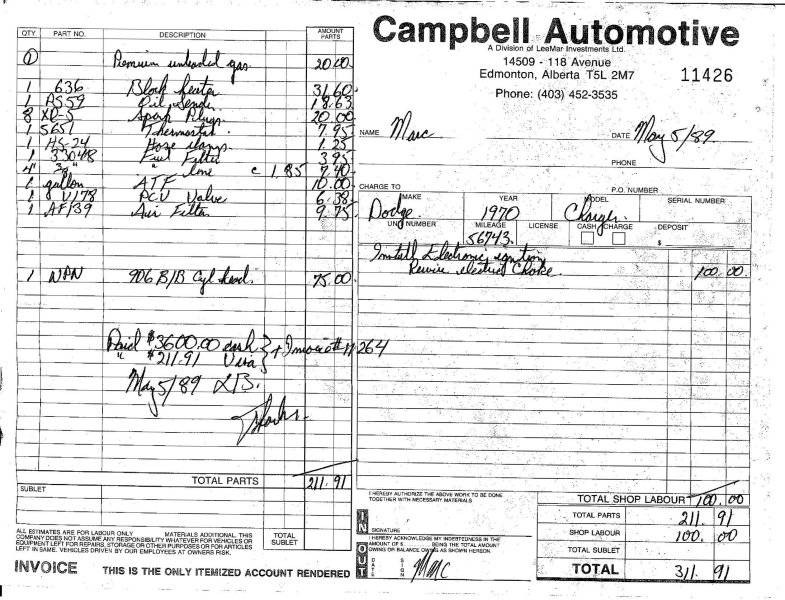 QTY. PART NO. DESCRIPTION AMOUNT PARTS
① Premium unleaded gas. 20.00
1 636 Block heater 31.60
1 PS59 Oil Sender 18.63
8 XD-5 Spark Plugs 20.00
1 5651 Thermostat 7.95
1 HS-24 Hose clamp 1.25
1 33048 Fuel Filter 3.95
4" 3/8" " line c 1.85 7.40
1 gallon ATF 10.00
1 V178 PCV Valve 6.38
1 AF139 Air Filter 9.75
1 WPN 906 B/B Cyl head. 75.00
Paid $3600.00 cash } + Invoice # 11264
" $211.91 Visa
May 5/89 LB.
Thanks.
TOTAL PARTS 211.91
SUBLET
ALL ESTIMATES ARE FOR LABOUR ONLY MATERIALS ADDITIONAL. THIS
COMPANY DOES NOT ASSUME ANY RESPONSIBILITY WHATEVER FOR VEHICLES OR
EQUIPMENT LEFT FOR REPAIRS, STORAGE OR OTHER PURPOSES OR FOR ARTICLES
LEFT IN SAME. VEHICLES DRIVEN BY OUR EMPLOYEES AT OWNERS RISK.
TOTAL SUBLET
INVOICE THIS IS THE ONLY ITEMIZED ACCOUNT RENDERED
Campbell Automotive
A Division of LeeMar Investments Ltd.
14509 - 118 Avenue
Edmonton, Alberta T5L 2M7
11426
Phone: (403) 452-3535
NAME Marc DATE May 5/89.
PHONE
CHARGE TO P.O. NUMBER
MAKE YEAR MODEL SERIAL NUMBER
Dodge. 1970 Charger.
UNIT NUMBER MILEAGE LICENSE CASH CHARGE DEPOSIT
56743. $
Install Electronic ignition
Rewire electric Choke. 100.00
I HEREBY AUTHORIZE THE ABOVE WORK TO BE DONE
TOGETHER WITH NECESSARY MATERIALS
IN
SIGNATURE
I HEREBY ACKNOWLEDGE MY INDEBTEDNESS IN THE
AMOUNT OF $ BEING THE TOTAL AMOUNT
OWING OR BALANCE OWING AS SHOWN HEREON.
OUT
DATE SIGN Marc
TOTAL SHOP LABOUR 100.00
TOTAL PARTS 211.91
SHOP LABOUR 100.00
TOTAL SUBLET
TOTAL 311.91